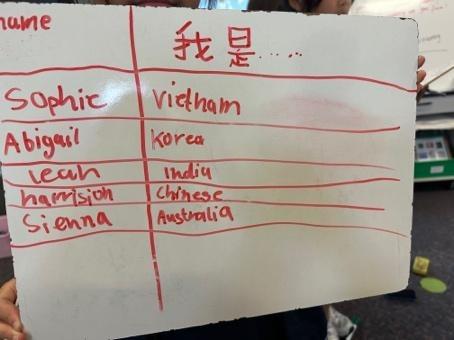 name 我是......
Sophie Vietnam
Abigail Korea
Leah India
harrision Chinese
Sienna Australia